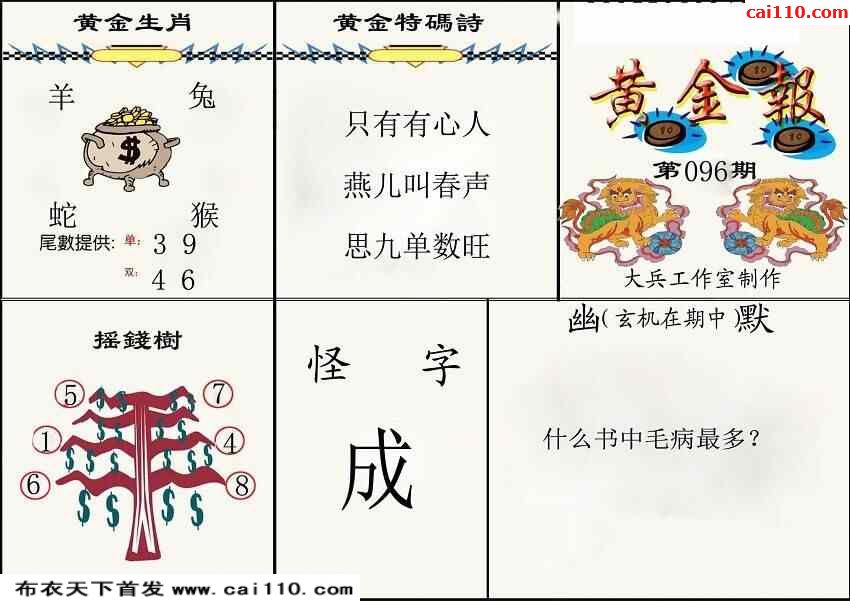 cai110.com
黄金生肖
羊 兔
$
蛇 猴
尾數提供: 单: 3 9
双: 4 6
黄金特碼詩
只有有心人
燕儿叫春声
思九单数旺
黄金報
第096期
大兵工作室制作
摇錢樹
5 7
1 4
6 8
怪 字
成
幽(玄机在期中)默
什么书中毛病最多?
布衣天下首发 www.cai110.com